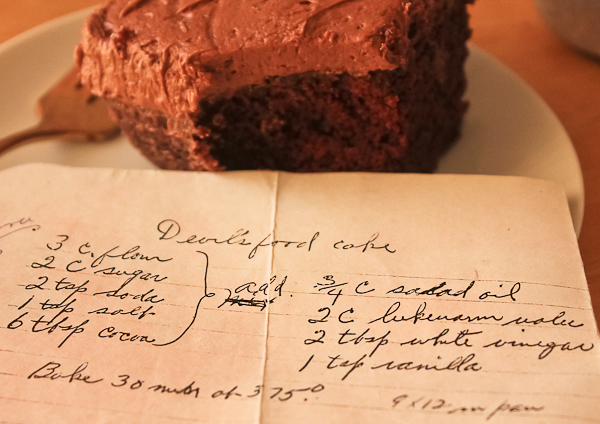 Devil's food cake
3 c. flour
2 C sugar
2 tsp soda
1 tsp salt
6 tbsp cocoa
add
3/4 C salad oil
2 C lukewarm water
2 tbsp white vinegar
1 tsp vanilla
Bake 30 min at 375°
9x12 in pan